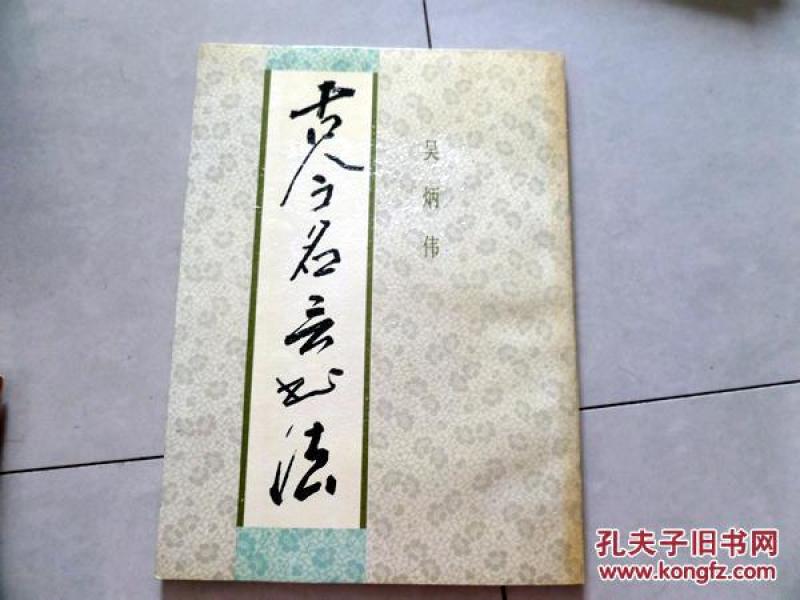 古今名言书法
吴炳伟
孔夫子旧书网
www.kongfz.com